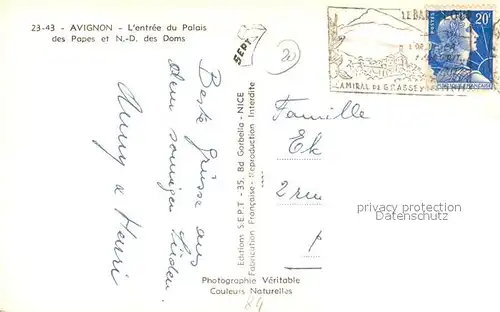 23-43 - AVIGNON - L'entrée du Palais
des Papes et N.-D. des Doms
SEPT
20
Beste Grüsse aus
dem sonnigen Süden.
Anny & Henri
Editions S.E.P.T - 35, Bd Gorbella - NICE
Fabrication Française - Reproduction Interdite
Photographie Véritable
Couleurs Naturelles
LE BAR
AMIRAL DE GRASSE
POSTES
20F
Famille
Ek
2 rue
privacy
protection